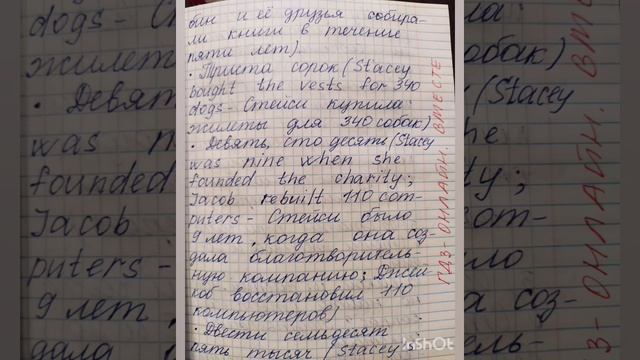 бин и её друзья собира-
ли книги в течение
пяти лет).
• Триста сорок (Stacey
bought the vests for 340
dogs - Стейси купила
жилеты для 340 собак)
• Девять, сто десять (Stacey
was nine when she
founded the charity;
Jacob rebuilt 110 com-
puters - Стейси было
9 лет, когда она соз-
дала благотворитель-
ную компанию; Джей-
коб восстановил 110
компьютеров)
• Двести семьдесят
пять тысяч (Stacey
ГДЗ-ОНЛАЙН. ВМЕСТЕ
InShOt